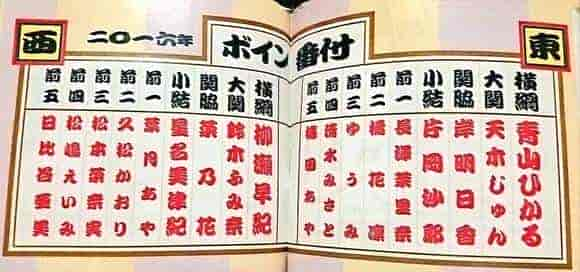 東
二〇一六年
ボイン番付
西
横綱 青山ひかる
大関 天木じゅん
関脇 岸明日香
小結 片岡沙耶
前一 長澤茉里奈
前二 橘花凛
前三 ゆうみ
前四 清水みさと
前五 田あや
横綱 柳瀬早紀
大関 鈴木ふみ奈
関脇 菜乃花
小結 星名美津紀
前一 葉月あや
前二 久松かおり
前三 松本菜奈実
前四 松嶋えいみ
前五 日比谷亜美